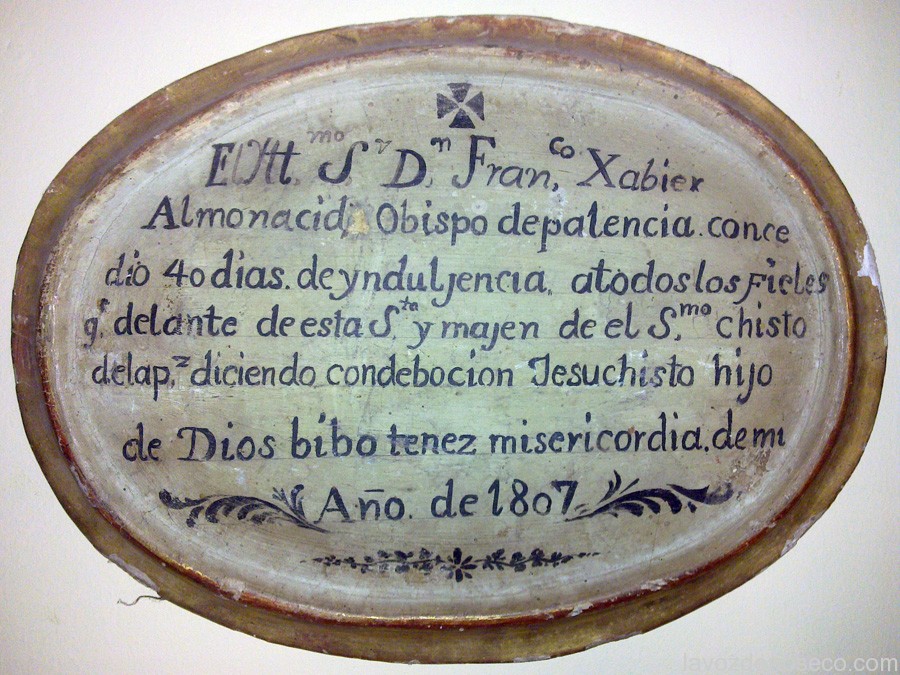 El Ytt.mo Sr Dn Fran.co Xabier
Almonacid, Obispo depalencia. conce
dio 40 dias. de ynduljencia. atodos los Fieles
q.e delante de esta S.ta y majen de el S.mo chisto
delap.z diciendo condebocion Jesuchisto hijo
de Dios bibo tenez misericordia. de mi
Año. de 1807